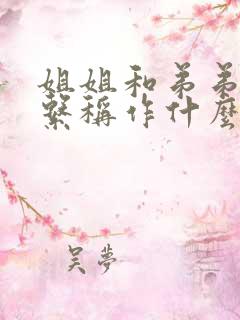 姐姐和弟弟
繫稱作什麼
吴夢